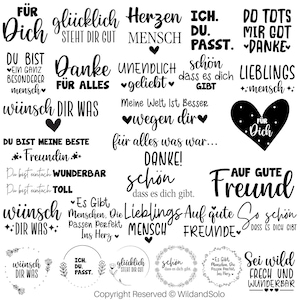 FÜR
Dich
glücklich
STEHT DIR GUT
Herzens
MENSCH
ICH.
DU.
PASST.
DO TOTS
MIR GOT
DANKE
DU BIST
EIN GANZ
BESONDERER
mensch
Danke
FÜR ALLES
UNENDLICH
geliebt
schön
dass es dich
GIBT
LIEBLINGS
mensch
wünsch
DIR WAS
Meine Welt Ist Besser
wegen dir
FÜR
Dich
DU BIST MEINE BESTE
Freundin
für alles was war...
DANKE!
Du bist einfach WUNDERBAR
Du bist einfach TOLL
schön
dass es dich gibt.
AUF GUTE
Freund
wünsch
DIR WAS
Es Gibt
Menschen, Die
Passen Perfekt
Ins Herz
Lieblings
MENSCH
Auf gute
FREUNDE
So schön
DASS ES DICH GIBT
wünsch
DIR WAS
ICH.
DU.
PASST.
glücklich
STEHT DIR GUT
schön
dass es dich gibt
Es Gibt
Menschen, Die
Passen Perfekt
Ins Herz
Sei wild
FRECH UND
WUNDERBAR
Copyright Reserved © WildandSolo